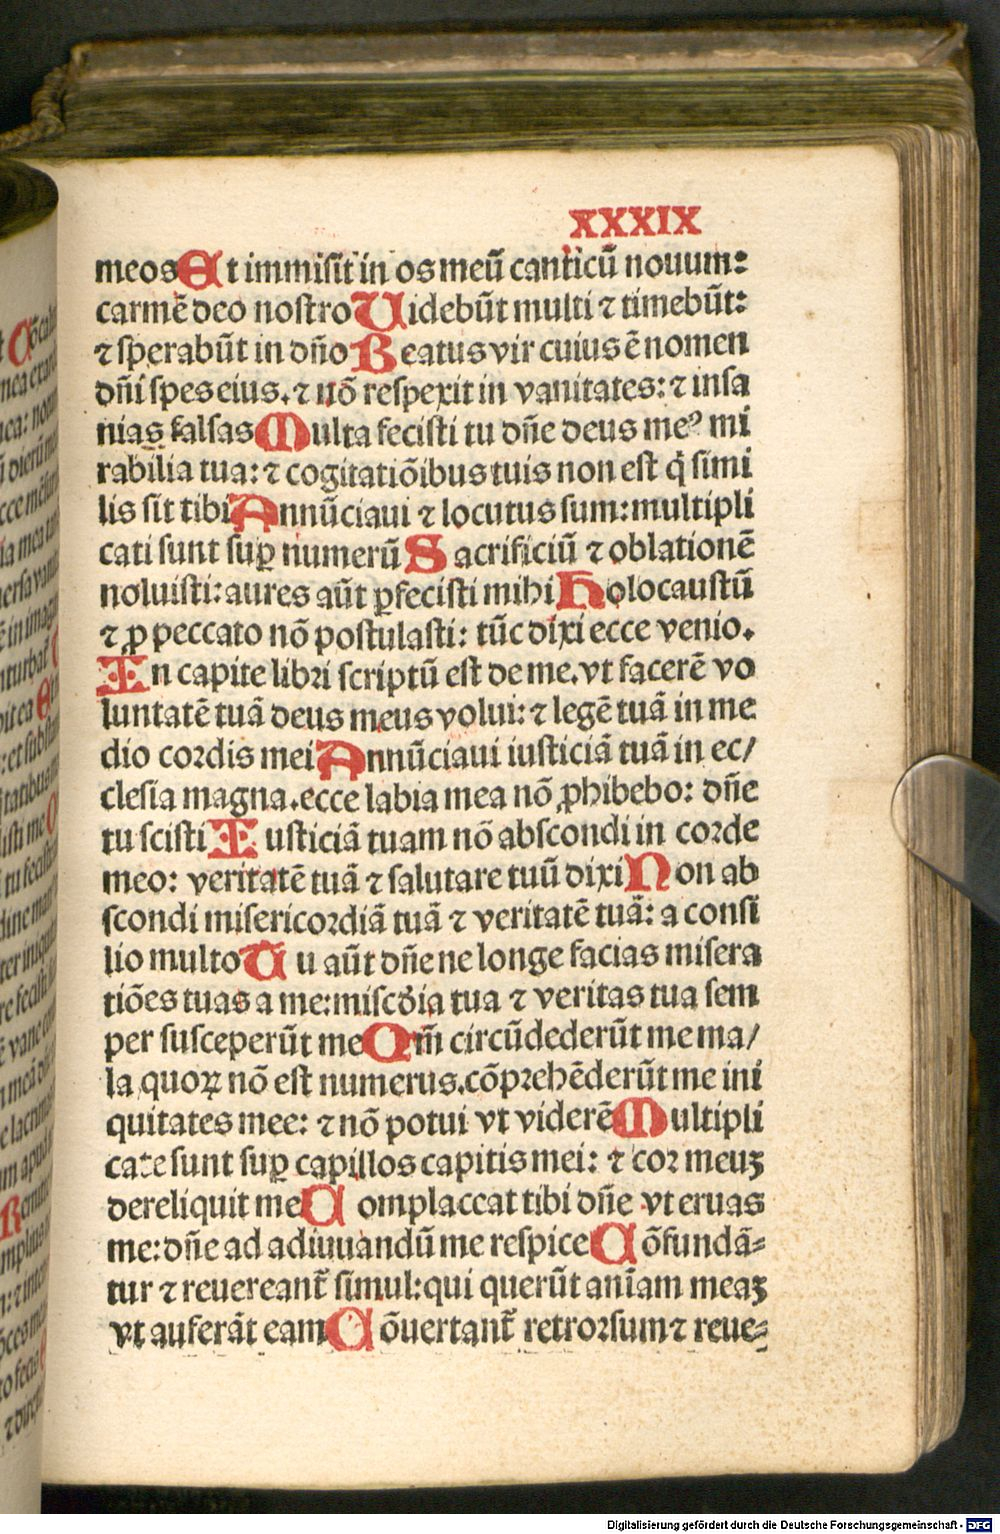 XXXIX
meos Et immisit in os meū canticū nouum:
carmē deo nostro Uidebūt multi ⁊ timebūt:
⁊ sperabūt in dn̄o Beatus vir cuius ē nomen
dn̄i spes eius. ⁊ nō respexit in vanitates: ⁊ insa
nias falsas Multa fecisti tu dn̄e deus meꝰ mi
rabilia tua: ⁊ cogitatiōibus tuis non est q̇ simi
lis sit tibi Annūciaui ⁊ locutus sum: multipli
cati sunt suꝑ numerū Sacrificiū ⁊ oblationē
noluisti: aures aūt ꝑfecisti mihi Holocaustū
⁊ ꝓ peccato nō postulasti: tūc dixi ecce venio.
In capite libri scriptū est de me. vt facerē vo
luntatē tuā deus meus volui: ⁊ legē tuā in me
dio cordis mei Annūciaui iusticiā tuā in ec/
clesia magna. ecce labia mea nō ꝓhibebo: dn̄e
tu scisti Iusticiā tuam nō abscondi in corde
meo: veritatē tuā ⁊ salutare tuū dixi Non ab
scondi misericordiā tuā ⁊ veritatē tuā: a consi
lio multo Tu aūt dn̄e ne longe facias misera
tiōes tuas a me: misc̄dia tua ⁊ veritas tua sem
per susceperūt me Qm̄ circūdederūt me ma/
la quoꝝ nō est numerus. cōprehēderūt me ini
quitates mee: ⁊ nō potui vt viderē Multipli
cate sunt suꝑ capillos capitis mei: ⁊ cor meuꝫ
dereliquit me Complaceat tibi dn̄e vt eruas
me: dn̄e ad adiuuandū me respice Cōfundā⸗
tur ⁊ reuereant̄ simul: qui querūt anīam meaꝫ
vt auferāt eam Cōuertant̄ retrorsum ⁊ reue⸗
Digitalisierung gefördert durch die Deutsche Forschungsgemeinschaft - DFG